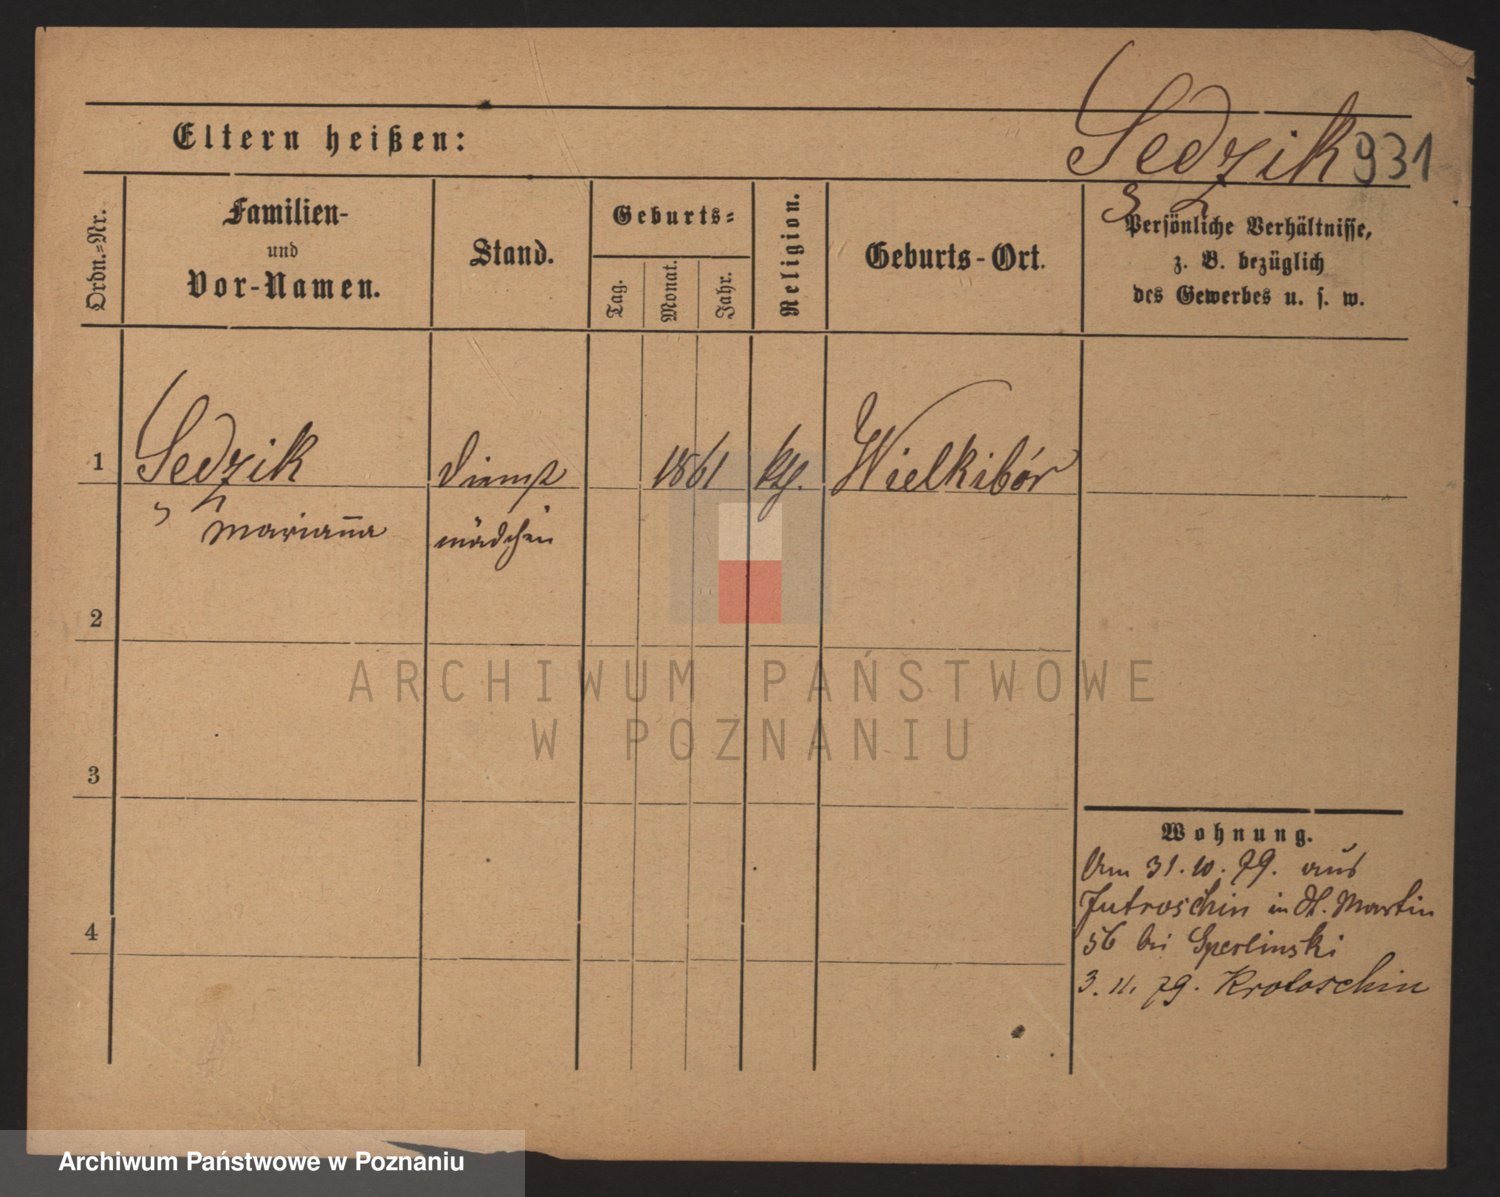 Sedzik 931
Eltern heißen:
Ordn.-Nr.
Familien-
und
Vor-Namen.
Stand.
Geburts-
Tag.
Monat.
Jahr.
Religion.
Geburts-Ort.
Persönliche Verhältnisse,
z. B. bezüglich
des Gewerbes u. s. w.
1 Sedzik Dienst 1861 kth. Wielkibór
Marianna mädchen
2
3
4
Wohnung.
Am 31.10.79. aus
Jutroschin in St. Martin
56 bei Sperlinski
3.11.79. Krotoschin
ARCHIWUM PAŃSTWOWE
W POZNANIU
Archiwum Państwowe w Poznaniu